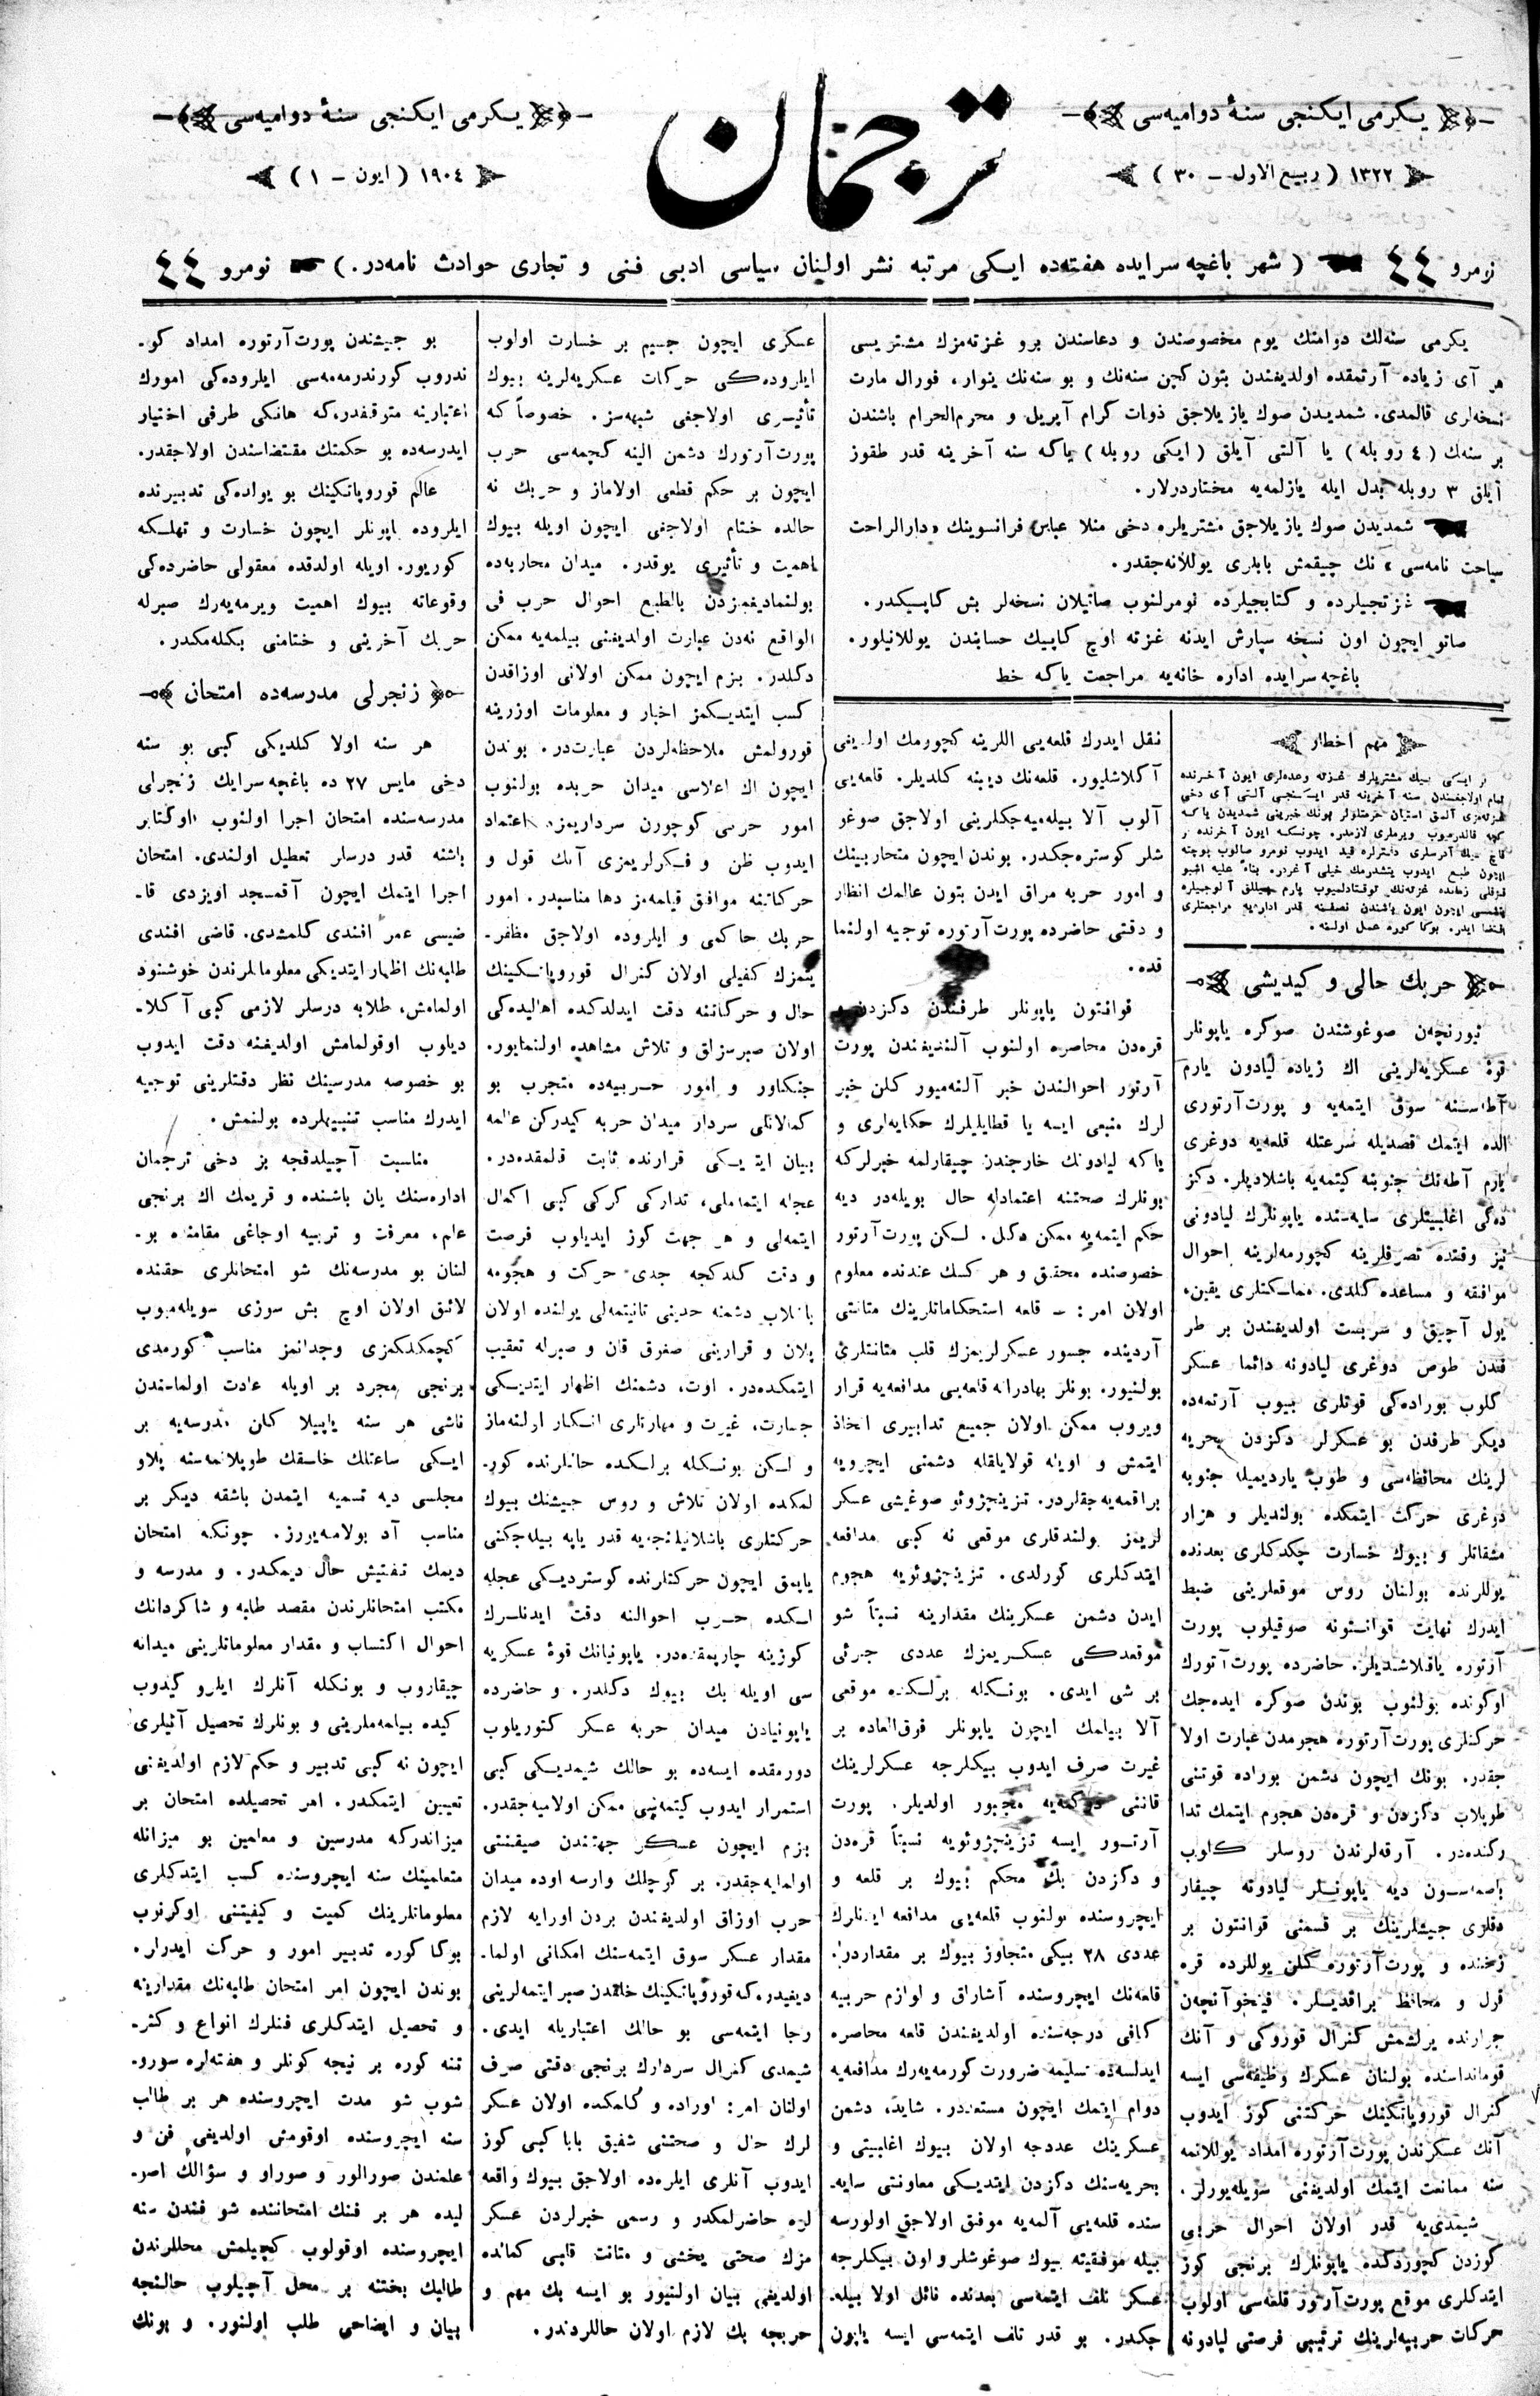 يكرمی ايكنجی سنهٔ دواميه‌سی
١٣٢٢ ( ربيع الاول – ٣٠ )
ترجمان
يكرمی ايكنجی سنهٔ دواميه‌سی
١٩٠٤ ( ايون – ١ )
نومرو ٤٤ ( شهر باغچه سرايده هفته‌ده ايكی مرتبه نشر اولنان سياسی ادبی فنی و تجاری حوادث نامه‌در. ) نومرو ٤٤
يكرمی سنه‌لك دوامنك يوم مخصوصندن و دعاسندن برو غزته‌مزك مشتريسی
هر آی زياده آرتمقده اولديغندن بتون كچن سنه‌نك و بو سنه‌نك ينوار، فورال مارت
نسخه‌لری قالمدی. شمديدن صوك يازيلاجق ذوات كرام آپريل و محرم‌الحرام باشندن
بر سنه‌لك ( ٤ روبله ) يا آلتی آيلق ( ايكی روبله ) ياكه سنه آخرينه قدر طقوز
آيلق ٣ روبله بدل ايله يازلمه‌يه مختاردرلار.
شمديدن صوك يازيلاجق مشتريلره دخی منلا عباس فرانسوينك « دارالراحت
سياحت نامه‌سی » نك چيقمش بابلری يوللانه‌جقدر.
غزتجيلرده و كتابجيلرده نومرلنوب صاتيلان نسخه‌لر بش كاپيكدر.
صاتو ايچون اون نسخه سپارش ايدنه غزته اوچ كاپيك حسابندن يوللانيلور.
باغچه سرايده اداره خانه‌يه مراجعت ياكه خط
مهم اخطار
حربك حالی و كيديشی
تيورنچه‌ن صوغوشندن صوكره ياپونلر
قوهٔ عسكريه‌لرينی اك زياده ليادون يارم
آطه‌سنه سوق ايتمه‌يه و پورت‌آرتوری
الده ايتمك قصديله سرعتله قلعه‌يه دوغری
يارم آطه‌نك جنوبنه كيتمه‌يه باشلاديلر. دكز
ده‌كی اغلبيتلری سايه‌سنده ياپونلرك ليادونی
تيز وقتده تصرفلرينه كچورمه‌لرينه احوال
موافقه و مساعده كلدی. مملكتلری يقين،
يول آچيق و سربست اولديغندن بر طر
فدن طوس دوغری ليادونه دائما عسكر
كلوب بوراده‌كی قوتلری بيوب آرتمه‌ده
ديكر طرفدن بو عسكرلر دكزدن بحريه
لرينك محافظه‌سی و طوب يارديميله جنوبه
دوغری حركت ايتمكده بولنديلر و هزار
مشقاتلر و بيوك خسارت چكدكلری بعدنده
يوللرنده بولنان روس موقعلرينی ضبط
ايدرك نهايت قوانتونه صوقيلوب پورت
آرتوره ياقلاشديلر. حاضرده پورت‌آرتورك
اوكونده بولنوب بوندن صوكره ايده‌جك
حركتلری پورت‌آرتوره هجومدن عبارت اولا
جقدر. بونك ايچون دشمن بوراده قوتنی
طوپلاب دكزدن و قره‌دن هجوم ايتمك تدا
ركنده‌در. آرقه‌لرندن روسلر كلوب
باصماسون ديه ياپونلر ليادونه چيقار
دقلری جيشلرينك بر قسمنی قوانتون بر
زخنده و پورت‌آرتوره كلن يوللرده قره
قول و محافظ براقديلر. فينخوآنچه‌ن
جوارنده يرلشمش كنرال قوروكی و آنك
قومانداسنده بولنان عسكرك وظيفه‌سی ايسه
كنرال قوروپاتكينك حركتنی كوز ايدوب
آنك عسكرندن پورت‌آرتوره امداد يوللانمه
سنه ممانعت ايتمك اولديغنی سويله‌يورلر.
شيمدی‌يه قدر اولان احوال حربی
كوزدن كچوردكده ياپونلرك برنجی كوز
ايتدكلری موقع پورت‌آرتور قلعه‌سی اولوب
حركات حربيه‌لرينك ترتيبی فرصتی ليادونه
نقل ايدرك قلعه‌يی اللرينه كچورمك اولديغی
آكلاشليور. قلعه‌نك ديبنه كلديلر. قلعه‌يی
آلوب آلا بيله‌ميه‌جكلرينی اولاجق صوغو
شلر كوستره‌جكدر. بوندن ايچون متحاربينك
و امور حربه مراق ايدن بتون عالمك انظار
و دقتی حاضرده پورت‌آرتوره توجيه اولنما
قده.
قوانتون ياپونلر طرفندن دكزدن و
قره‌دن محاصره اولنوب آلنديغندن پورت
آرتور احوالندن خبر آلنه‌ميور كلن خبر
لرك منبعی ايسه يا قطايليلرك حكايه‌لری و
ياكه ليادونك خارجندن چيقارلمه خبرلركه
بونلرك صحتنه اعتمادله حال بويله‌در ديه
حكم ايتمه‌يه ممكن دكل. لكن پورت‌آرتور
خصوصنده محقق و هر كسك عندنده معلوم
اولان امر: – قلعه استحكاماتلرينك متانتی
آردينده جسور عسكرلريمزك قلب متانتلری
بولنيور. بونلر بهادرانه قلعه‌يی مدافعه‌يه قرار
ويروب ممكن اولان جميع تدابيری اتخاذ
ايتمش و اويله قولايلقله دشمنی ايچرويه
براقمه‌يه‌جقلردر. تزينچژوئو صوغيشی عسكر
لريمز بولندقلری موقعی نه كبی مدافعه
ايتدكلری كورلدی. تزينچژوئويه هجوم
ايدن دشمن عسكرينك مقدارينه نسبتاً شو
موقعدكی عسكريمزك عددی جزئی
بر شی ايدی. بونكله برلكده موقعی
آلا بيلمك ايچون ياپونلر فوق‌العاده بر
غيرت صرف ايدوب بيكلرجه عسكرلرينك
قاننی دوكمه‌يه مجبور اولديلر. پورت
آرتور ايسه تزينچژوئويه نسبتاً قره‌دن
و دكزدن بك محكم بيوك بر قلعه و
ايچروسنده بولنوب قلعه‌يی مدافعه ايدنلرك
عددی ٢٨ بيكی متجاوز بيوك بر مقداردر.
قلعه‌نك ايچروسنده آشاراق و لوازم حربيه
كافی درجه‌سنده اولديغندن قلعه محاصره
ايدلسه‌ده تسليمه ضرورت كورمه‌يه‌رك مدافعه‌يه
دوام ايتمك ايچون مستعددر. شايد، دشمن
عسكرينك عددجه اولان بيوك اغلبيتی و
بحريه‌سنك دكزدن ايتديكی معاونتی سايه‌
سنده قلعه‌يی آلمه‌يه موفق اولاجق اولورسه
بيله موفقيته بيوك صوغوشلر و اون بيكلرجه
عسكر تلف ايتمه‌سی بعدنده نائل اولا بيله‌
جكدر. بو قدر تلف ايتمه‌سی ايسه ياپون
عسكری ايچون جسيم بر خسارت اولوب
ايلروده‌كی حركات عسكريه‌لرينه بيوك
تأثيری اولاجغی شبهه‌سز. خصوصاً كه
پورت‌آرتورك دشمن الينه كچمه‌سی حرب
ايچون بر حكم قطعی اولاماز و حربك نه
حالده ختام اولاجغی ايچون اويله بيوك
اهميت و تأثيری يوقدر. ميدان محاربه‌ده
بولنماديغمزدن بالطبع احوال حرب فی
الواقع نه‌دن عبارت اولديغنی بيلمه‌يه ممكن
دكلدر. بزم ايچون ممكن اولانی اوزاقدن
كسب ايتديكمز اخبار و معلومات اوزرينه
قورولمش ملاحظه‌لردن عبارت‌در. بوندن
ايچون اك اعلاسی ميدان حربده بولنوب
امور حربی كوچورن سرداريمزه اعتماد
ايدوب ظن و فكرلريمزی آنك قول و
حركاتنه موافق قيلمه‌مز دها مناسبدر. امور
حربك حاكمی و ايلروده اولاجق مظفر‌
يتمزك كفيلی اولان كنرال قوروپاتكينك
حال و حركاتنه دقت ايدلدكده اهاليده‌كی
اولان صبرسزلق و تلاش مشاهده اولنمايور.
جنكاور و امور حربيه‌ده متجرب بو
كمالاتلی سردار ميدان حربه كيدركن عالمه
بيان ايتديكی قرارنده ثابت قالمقده‌در.
عجله ايتمه‌ملی، تداركی كركی كبی اكمال
ايتمه‌لی و هر جهت كوز ايدياوب فرصت
و دقت كلدكجه جدی حركت و هجومه
باشلاب دشمنه حدينی تانيتمه‌لی يولنده اولان
پلان و قرارينی صغوق قان و صبرله تعقيب
ايتمكده‌در. اوت، دشمنك اظهار ايتديكی
جسارت، غيرت و مهارتلری انكار اولنه‌ماز
و لكن بونكله برلكده حاللرنده كور‌
لمكده اولان تلاش و روس جيشنك بيوك
حركتلری باشلانيلنجه‌يه قدر ياپه بيله‌جكنی
ياپمق ايچون حركتلرنده كوسترديكی عجله
لكده حرب احوالنه دقت ايدنلرك
كوزينه چارپمقده‌در. ياپونيانك قوهٔ عسكريه
سی اويله بك بيوك دكلدر. و حاضرده
ياپونيادن ميدان حربه عسكر كتوريلوب
دورمقده ايسه‌ده بو حالك شيمديكی كبی
استمرار ايدوب كيتمه‌سی ممكن اولاميه‌جقدر.
بزم ايچون عسكر جهتندن صيقنتی
اولمايه‌جقدر. بر كوچلك وارسه اوده ميدان
حرب اوزاق اولديغندن بردن اورايه لازم
مقدار عسكر سوق ايتمه‌سنك امكانی اولما‌
ديغيدر. كه قوروپاتكينك خلقدن صبر ايتمه‌لرينی
رجا ايتمه‌سی بو حالك اعتباريله ايدی.
شيمدی كنرال سردارك برنجی دقتی صرف
اولنان امر: اوراده و كلمكده اولان عسكر
لرك حال و صحتنی شفيق بابا كبی كوز
ايدوب آنلری ايلروده اولاجق بيوك واقعه
لره حاضرلمكدر و رسمی خبرلردن عسكر
مزك صحتی يخشی و متانت قلبی كمالده
اولديغی بيان اولنيور بو ايسه بك مهم و
حربجه بك لازم اولان حاللردندر.
بو جيشندن پورت‌آرتوره امداد كو‌
ندروب كوندرمه‌مه‌سی ايلروده‌كی امورك
اعتبارينه متوقفدر، كه هانكی طرفی اختيار
ايدرسه‌ده بو حكمتك مقتضاسندن اولاجقدر.
عالم قوروپاتكينك بو يولده‌كی تدبيرنده
ايلروده ياپونلر ايچون خسارت و تهلكه
كوريور. اويله اولدقده معقولی حاضرده‌كی
وقوعاته بيوك اهميت ويرمه‌يه‌رك صبرله
حربك آخرينی و ختامنی بكله‌مكدر.
زنجرلی مدرسه‌ده امتحان
هر سنه اولا كلديكی كبی بو سنه
دخی مايس ٢٧ ده باغچه‌سرايك زنجرلی
مدرسه‌سنده امتحان اجرا اولنوب اوكتابر
باشنه قدر درسلر تعطيل اولندی. امتحان
اجرا ايتمك ايچون آقمسجد اويزدی قا‌
ضيسی عمر افندی كلمشدی. قاضی افندی
طلبه‌نك اظهار ايتديكی معلوماتلرندن خوشنود
اولمامش، طلابه درسلر لازمی كبی آكلا‌
ديلوب اوقولمامش اولديغنه دقت ايدوب
بو خصوصه مدرسينك نظر دقتلرينی توجيه
ايدرك مناسب تنبيهلرده بولنمش.
مناسبت آچيلدقجه بز دخی ترجمان
اداره‌سنك يان باشنده و قريمك اك برنجی
علم، معرفت و تربيه اوجاغی مقامنده بو‌
لنان بو مدرسه‌نك شو امتحانلری حقنده
لائق اولان اوچ بش سوزی سويله‌ميوب
كچمكلكمزی وجدانمز مناسب كورمدی
برنجی مجرد بر اويله عادت اولماسندن
ناشی هر سنه ياپيلا كلن مدرسه‌يه بر
ايكی ساعتلك خلقك طوپلانمه‌سنه پلاو
مجلسی ديه تسميه ايتمدن باشقه ديكر بر
مناسب آد بولامه‌يورز. چونكه امتحان
ديمك تفتيش حال ديمكدر. و مدرسه و
مكتب امتحانلرندن مقصد طلبه و شاكردانك
احوال اكتساب و مقدار معلوماتلرينی ميدانه
چيقاروب و بونكله آنلرك ايلرو كيدوب
كيده بيلمه‌ملرينی و بونلرك تحصيل آتيلری
ايچون نه كبی تدبير و حكم لازم اولديغنی
تعيين ايتمكدر. امر تحصيلده امتحان بر
ميزاندركه مدرسين و معلمين بو ميزانله
متعلمينك سنه ايچروسنده كسب ايتدكلری
معلوماتلرينك كميت و كيفيتنی اوكرنوب
بوكا كوره تدبير امور و حركت ايدرلر.
بوندن ايچون امر امتحان طلبه‌نك مقدارينه
و تحصيل ايتدكلری فنلرك انواع و كثر‌
تنه كوره بر نيجه كونلر و هفته‌لره سورو‌
شوب شو مدت ايچروسنده هر بر طالب
سنه ايچروسنده اوقومش اولديغی فن و
علمندن صورالور و صوراو و سؤالك اصو‌
ليده هر بر فنك امتحاننده شو فندن سنه
ايچروسنده اوقولوب كچيلمش محللرندن
طالبك بختنه بر محل آچيلوب حالنجه
بيان و ايضاحی طلب اولنور. و بونك